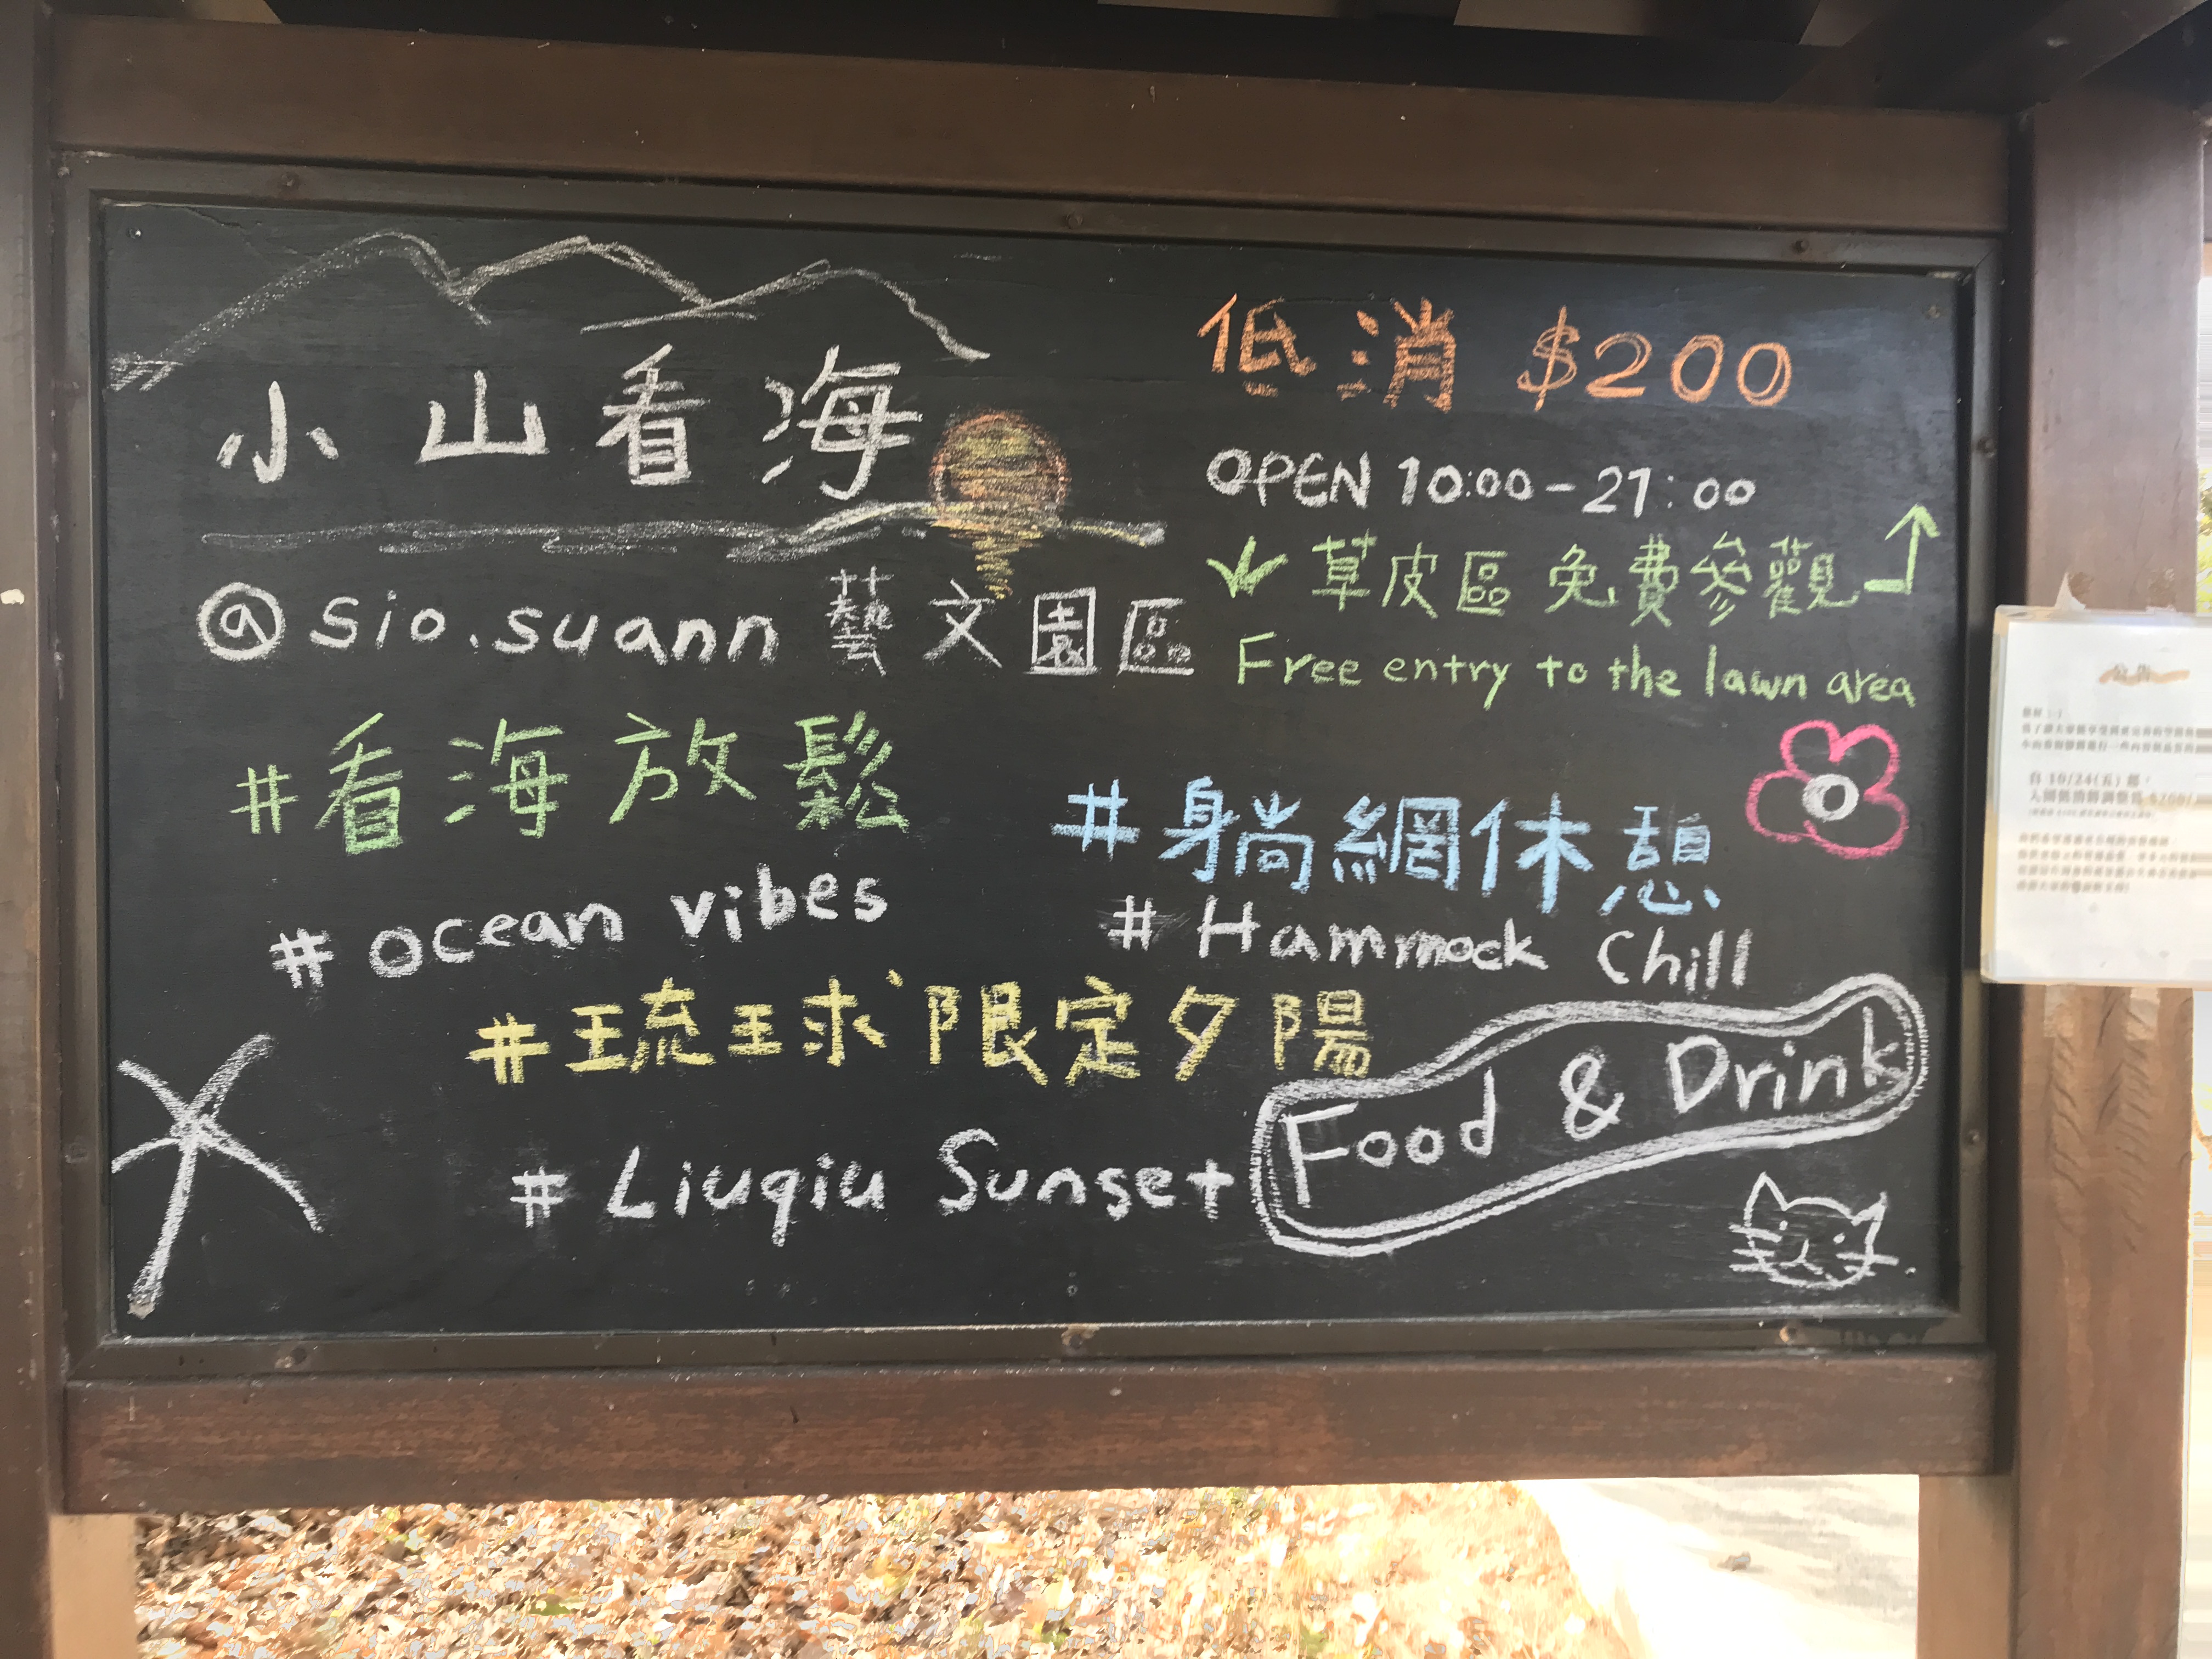 小山看海
@sio.suann 藝文園區
低消 $200
OPEN 10:00-21:00
草皮區 免費參觀
Free entry to the lawn area
#看海放鬆
#ocean vibes
#躺網休憩
#Hammock Chill
#琉球限定夕陽
#Liuqiu Sunset
Food & Drink
自 10/24(五) 起，